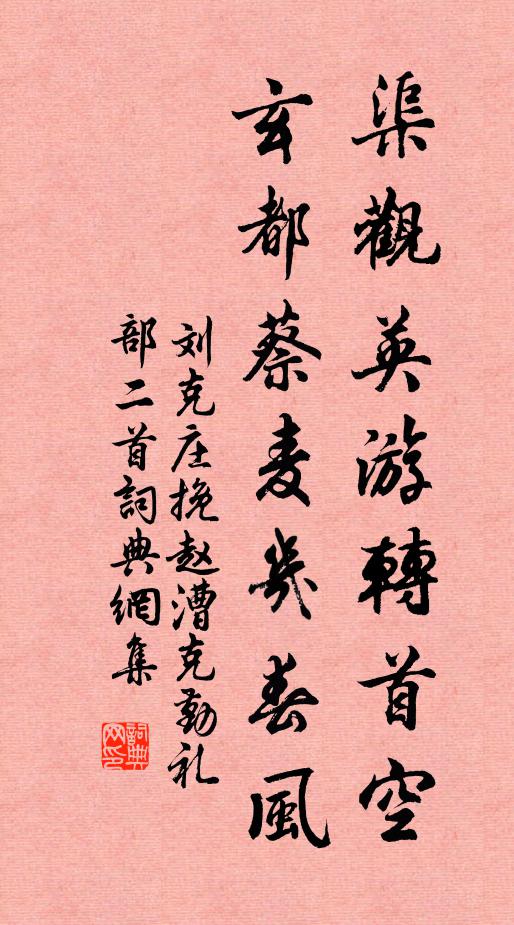 渠觀英游轉首空
玄都蔡麦幾春風
刘克庄挽赵漕克勤礼
部二首詞典網集
詞典网印